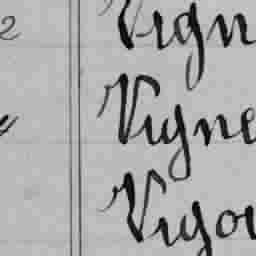 2 Vign
Vigne
Vigou